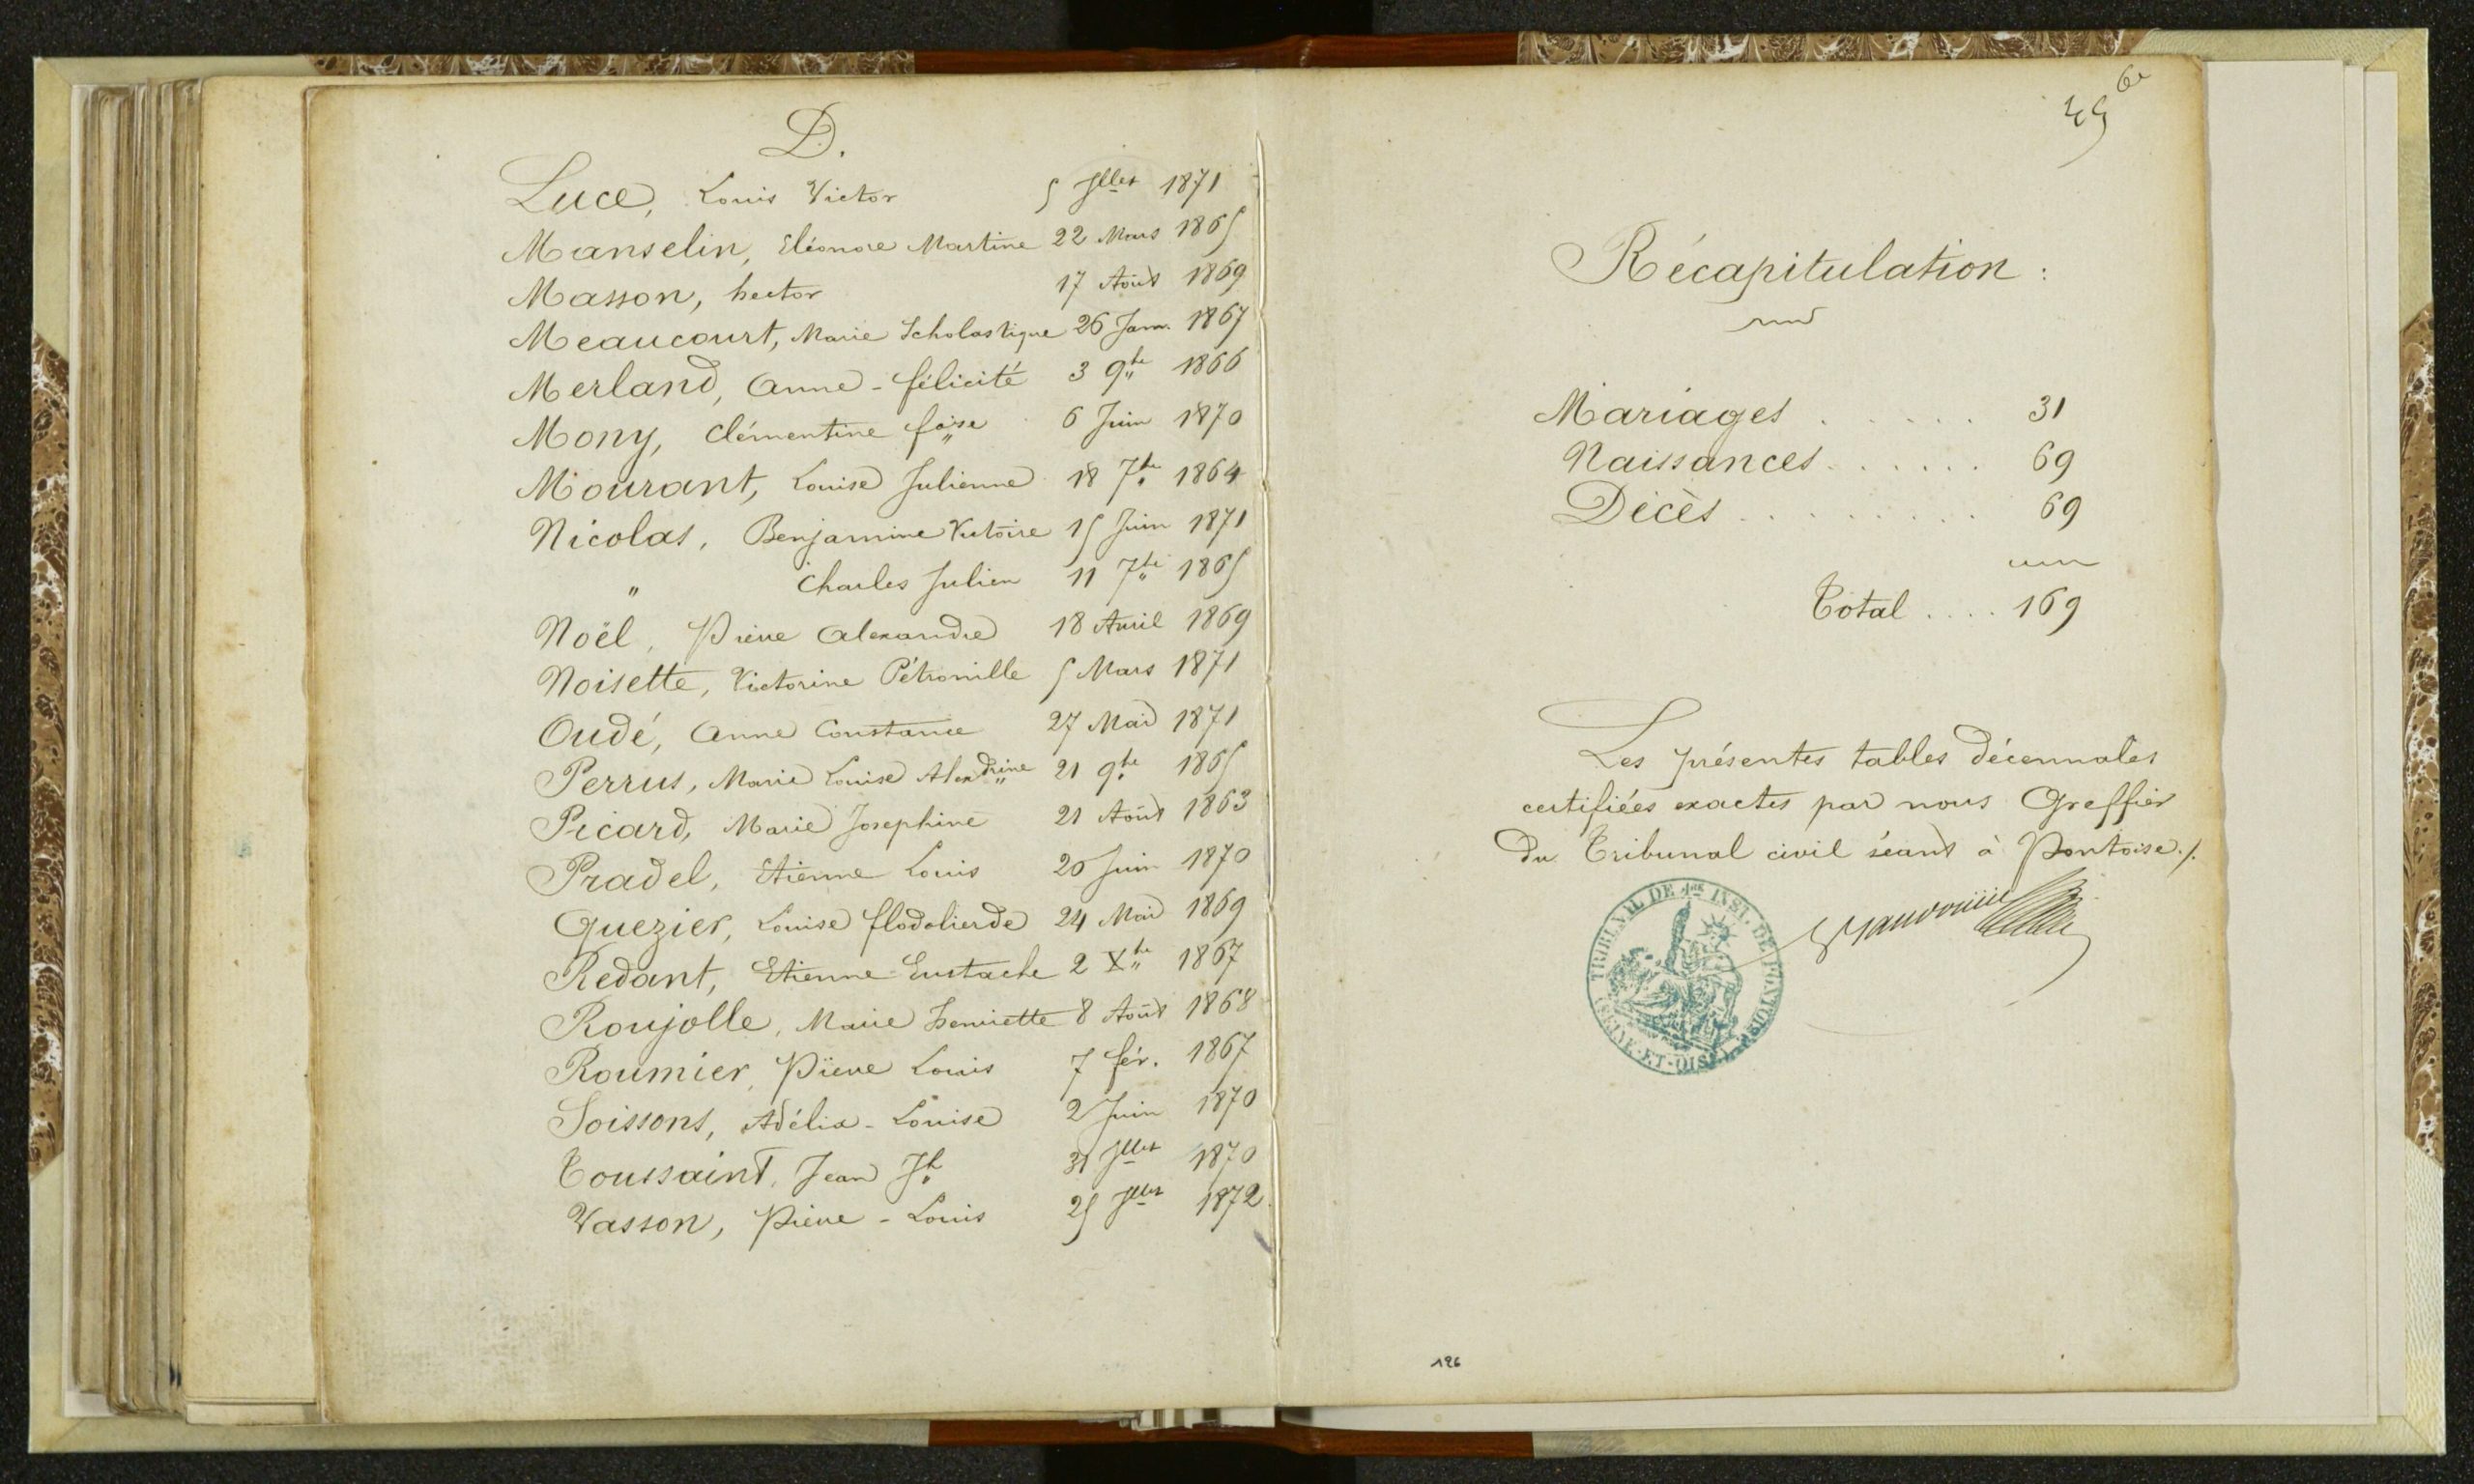 D.
Luce, Louis Victor 5 Jllet 1871
Manselin, Eléonore Martine 22 Mars 1865
Masson, hector 17 Août 1869
Meaucourt, Marie Scholastique 26 Janv. 1867
Merland, Anne-félicité 3 9bre 1866
Mony, Clémentine foise 6 Juin 1870
Mourant, Louise Julienne 18 7bre 1864
Nicolas, Benjamine Victoire 15 Juin 1871
" Charles Julien 11 7bre 1865
Noël, Pierre Alexandre 18 Avril 1869
Noisette, Victorine Pétronille 5 Mars 1871
Oudé, Anne Constance 27 Mai 1871
Perrus, Marie Louise Alexdrine 21 9bre 1865
Picard, Marie Josephine 21 Août 1863
Pradel, Etienne Louis 20 Juin 1870
Quezier, Louise flodolierde 24 Mai 1869
Redant, Etienne Eustache 2 Xbre 1867
Roujolle, Marie henriette 8 Août 1868
Roumier, Pierre Louis 7 fév. 1867
Soissons, Adélia-Louise 2 Juin 1870
Toussaint, Jean Jh 31 Jllet 1870
Vasson, Pierre-Louis 25 Jllet 1872.
Récapitulation :
Mariages . . . . . 31
Naissances . . . . . . 69
Décès . . . . . . . . . 69
Total . . . . 169
Les présentes tables décennales
certifiées exactes par nous Greffier
du Tribunal civil séant à Pontoise./.
TRIBUNAL DE 1re INST. DE PONTOISE
(SEINE-ET-OISE)
126